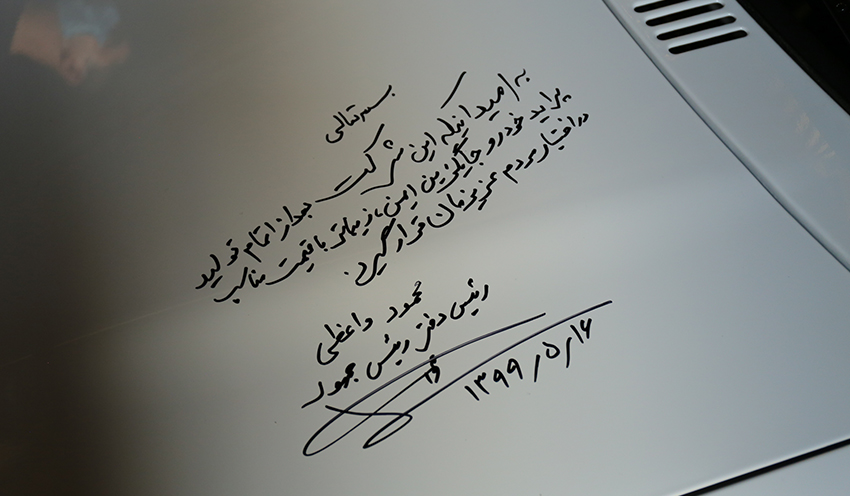 بسمه‌تعالی
به امید اینکه این شرکت بعد از اتمام تولید
پراید خودرو جایگزین ایمن، زیباتر با قیمت مناسب
در اختیار مردم عزیزمان قرار گیرد.
محمود واعظی
رئیس دفتر رئیس جمهور
۱۳۹۹/۵/۱۶